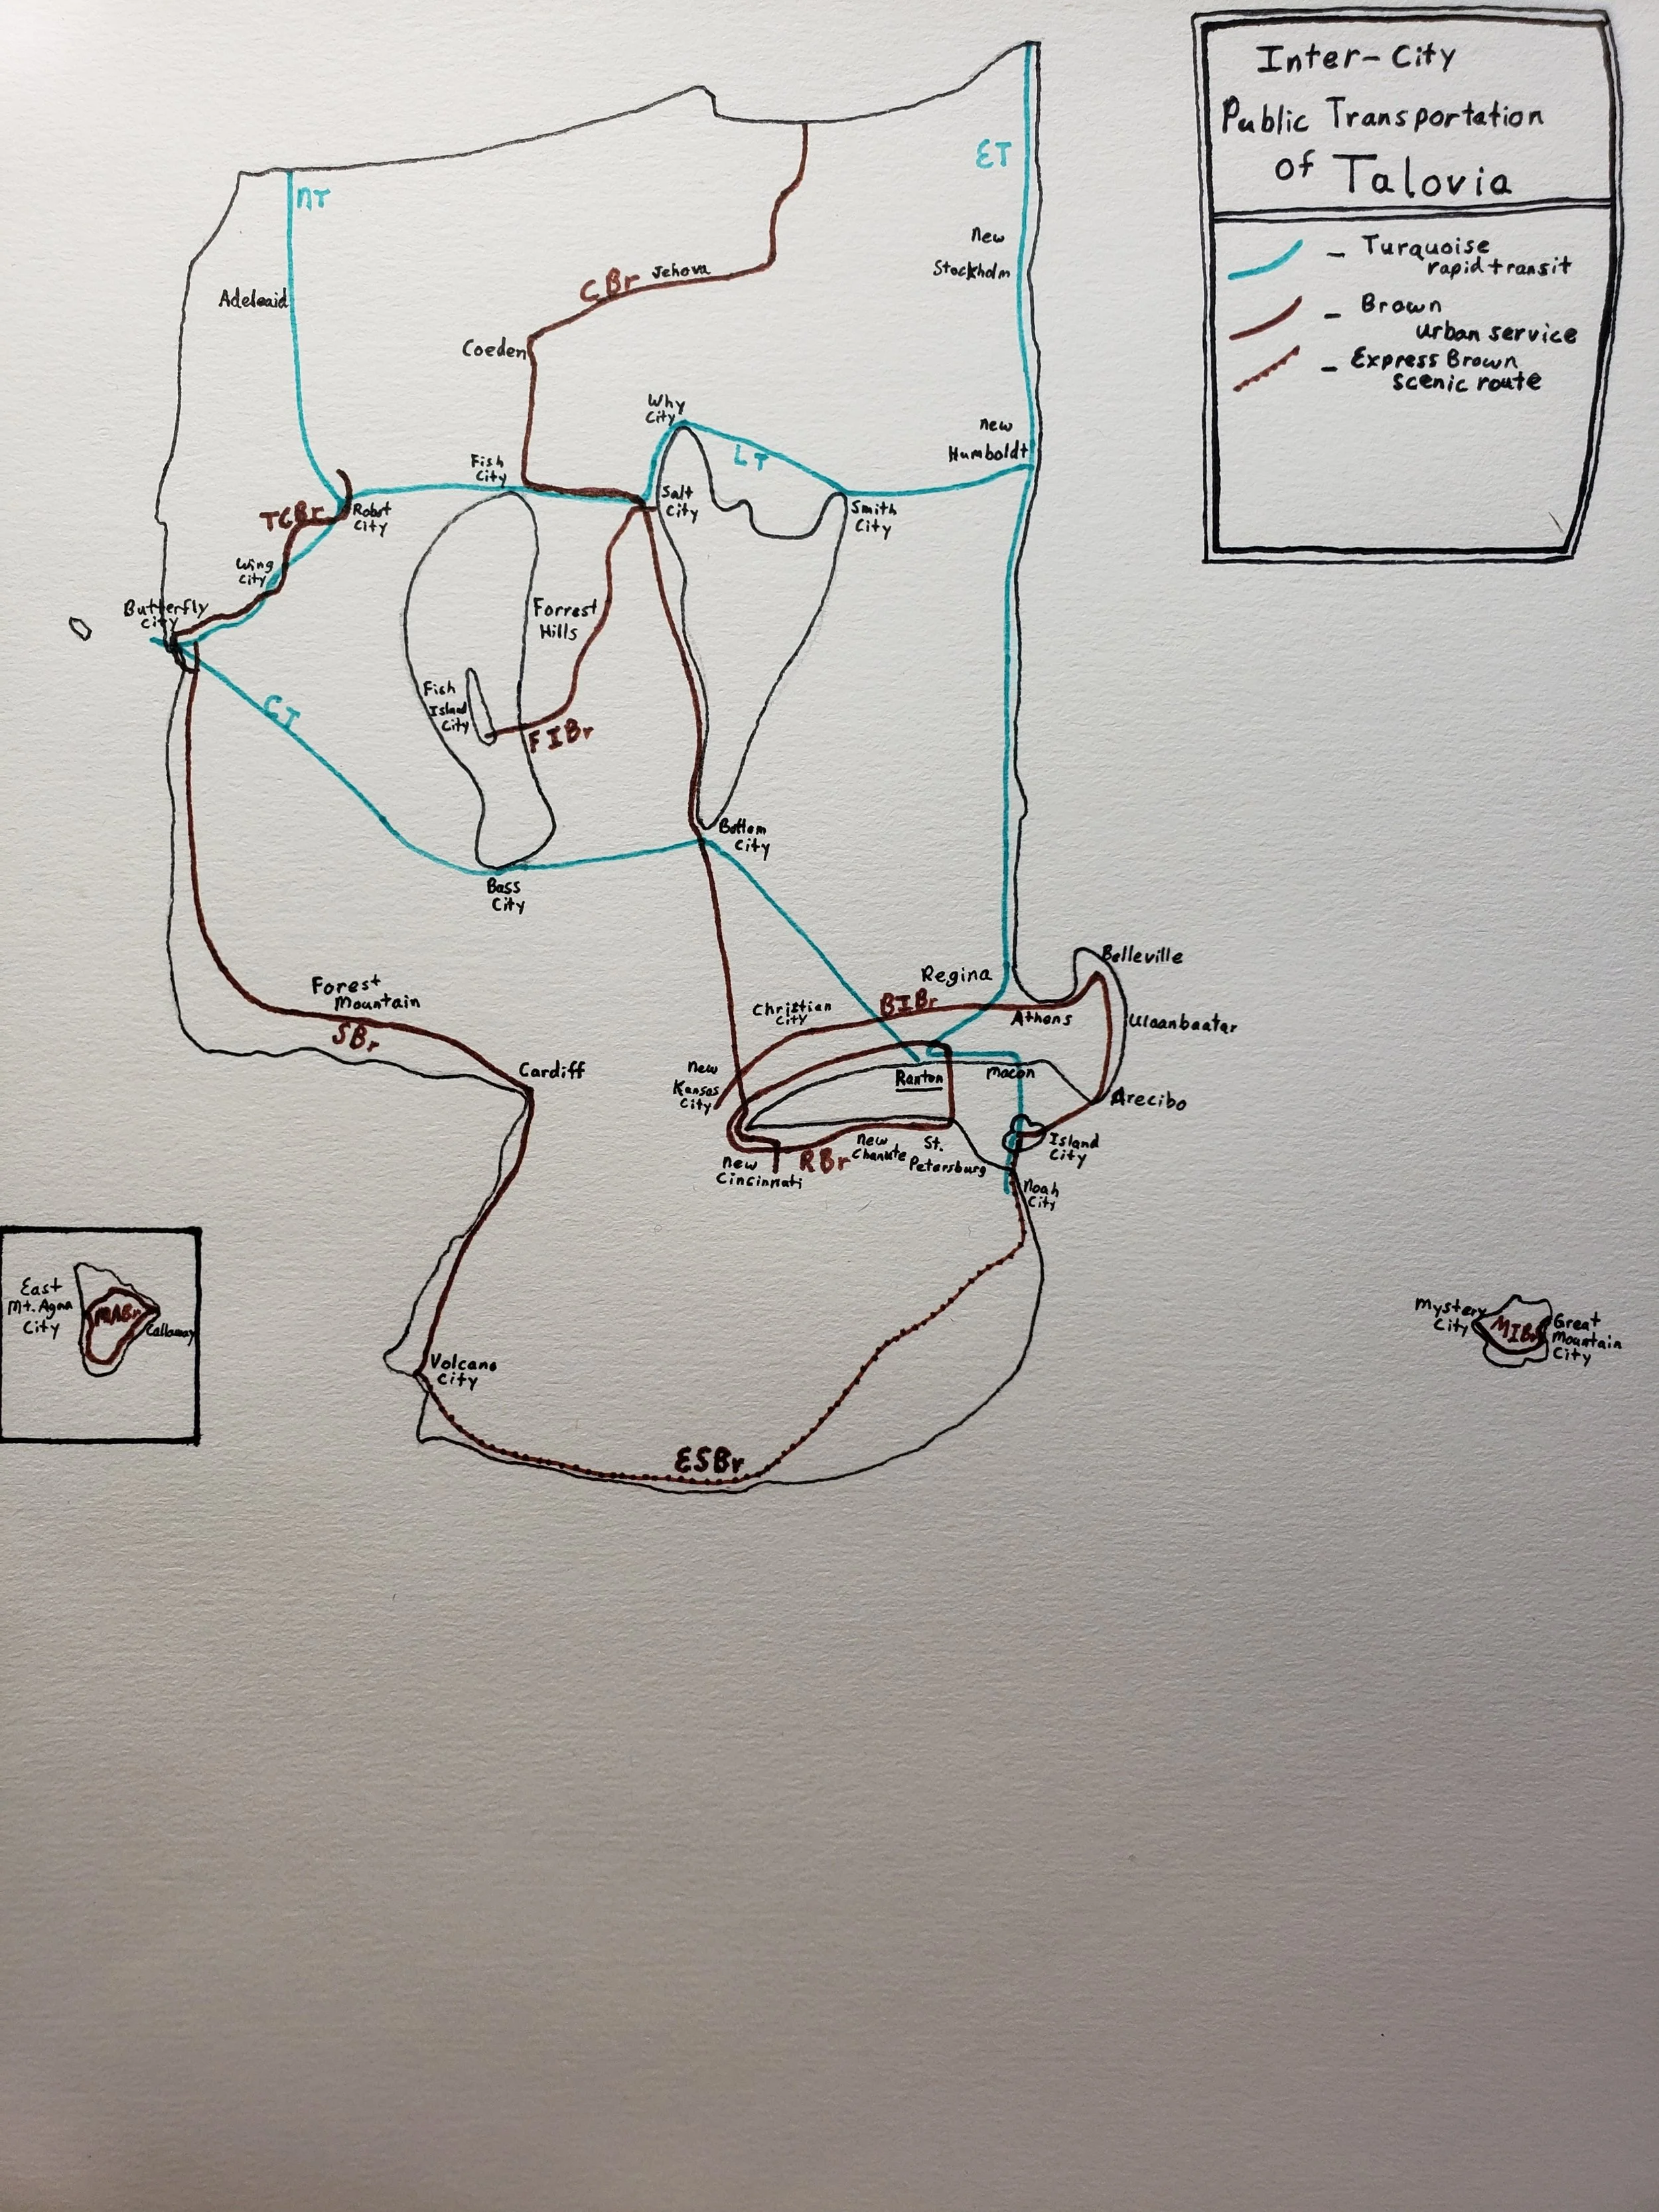 Inter-City
Public Transportation
of Talovia
- Turquoise
rapid transit
- Brown
urban service
- Express Brown
scenic route
NT
ET
New
Stockholm
Adelaaid
CBr
Jehova
Coeden
Why
City
LT
New
Humboldt
Fish
City
Salt
City
Smith
City
TCBr
Robot
City
Wing
City
Butterfly
City
Forrest
Hills
Fish
Island
City
FIBr
CT
Bottom
City
Bass
City
Belleville
Regina
Forest
Mountain
SBr
Christian
City
BIBr
Athens
Ulaanbaatar
Cardiff
New
Kansas
City
Ranton
Macon
Arecibo
Island
City
New
Cincinnati
RBr
New
Chanute
St.
Petersburg
Noah
City
East
Mt. Agna
City
MABr
Callaway
Volcano
City
ESBr
Mystery
City
MIBr
Great
Mountain
City